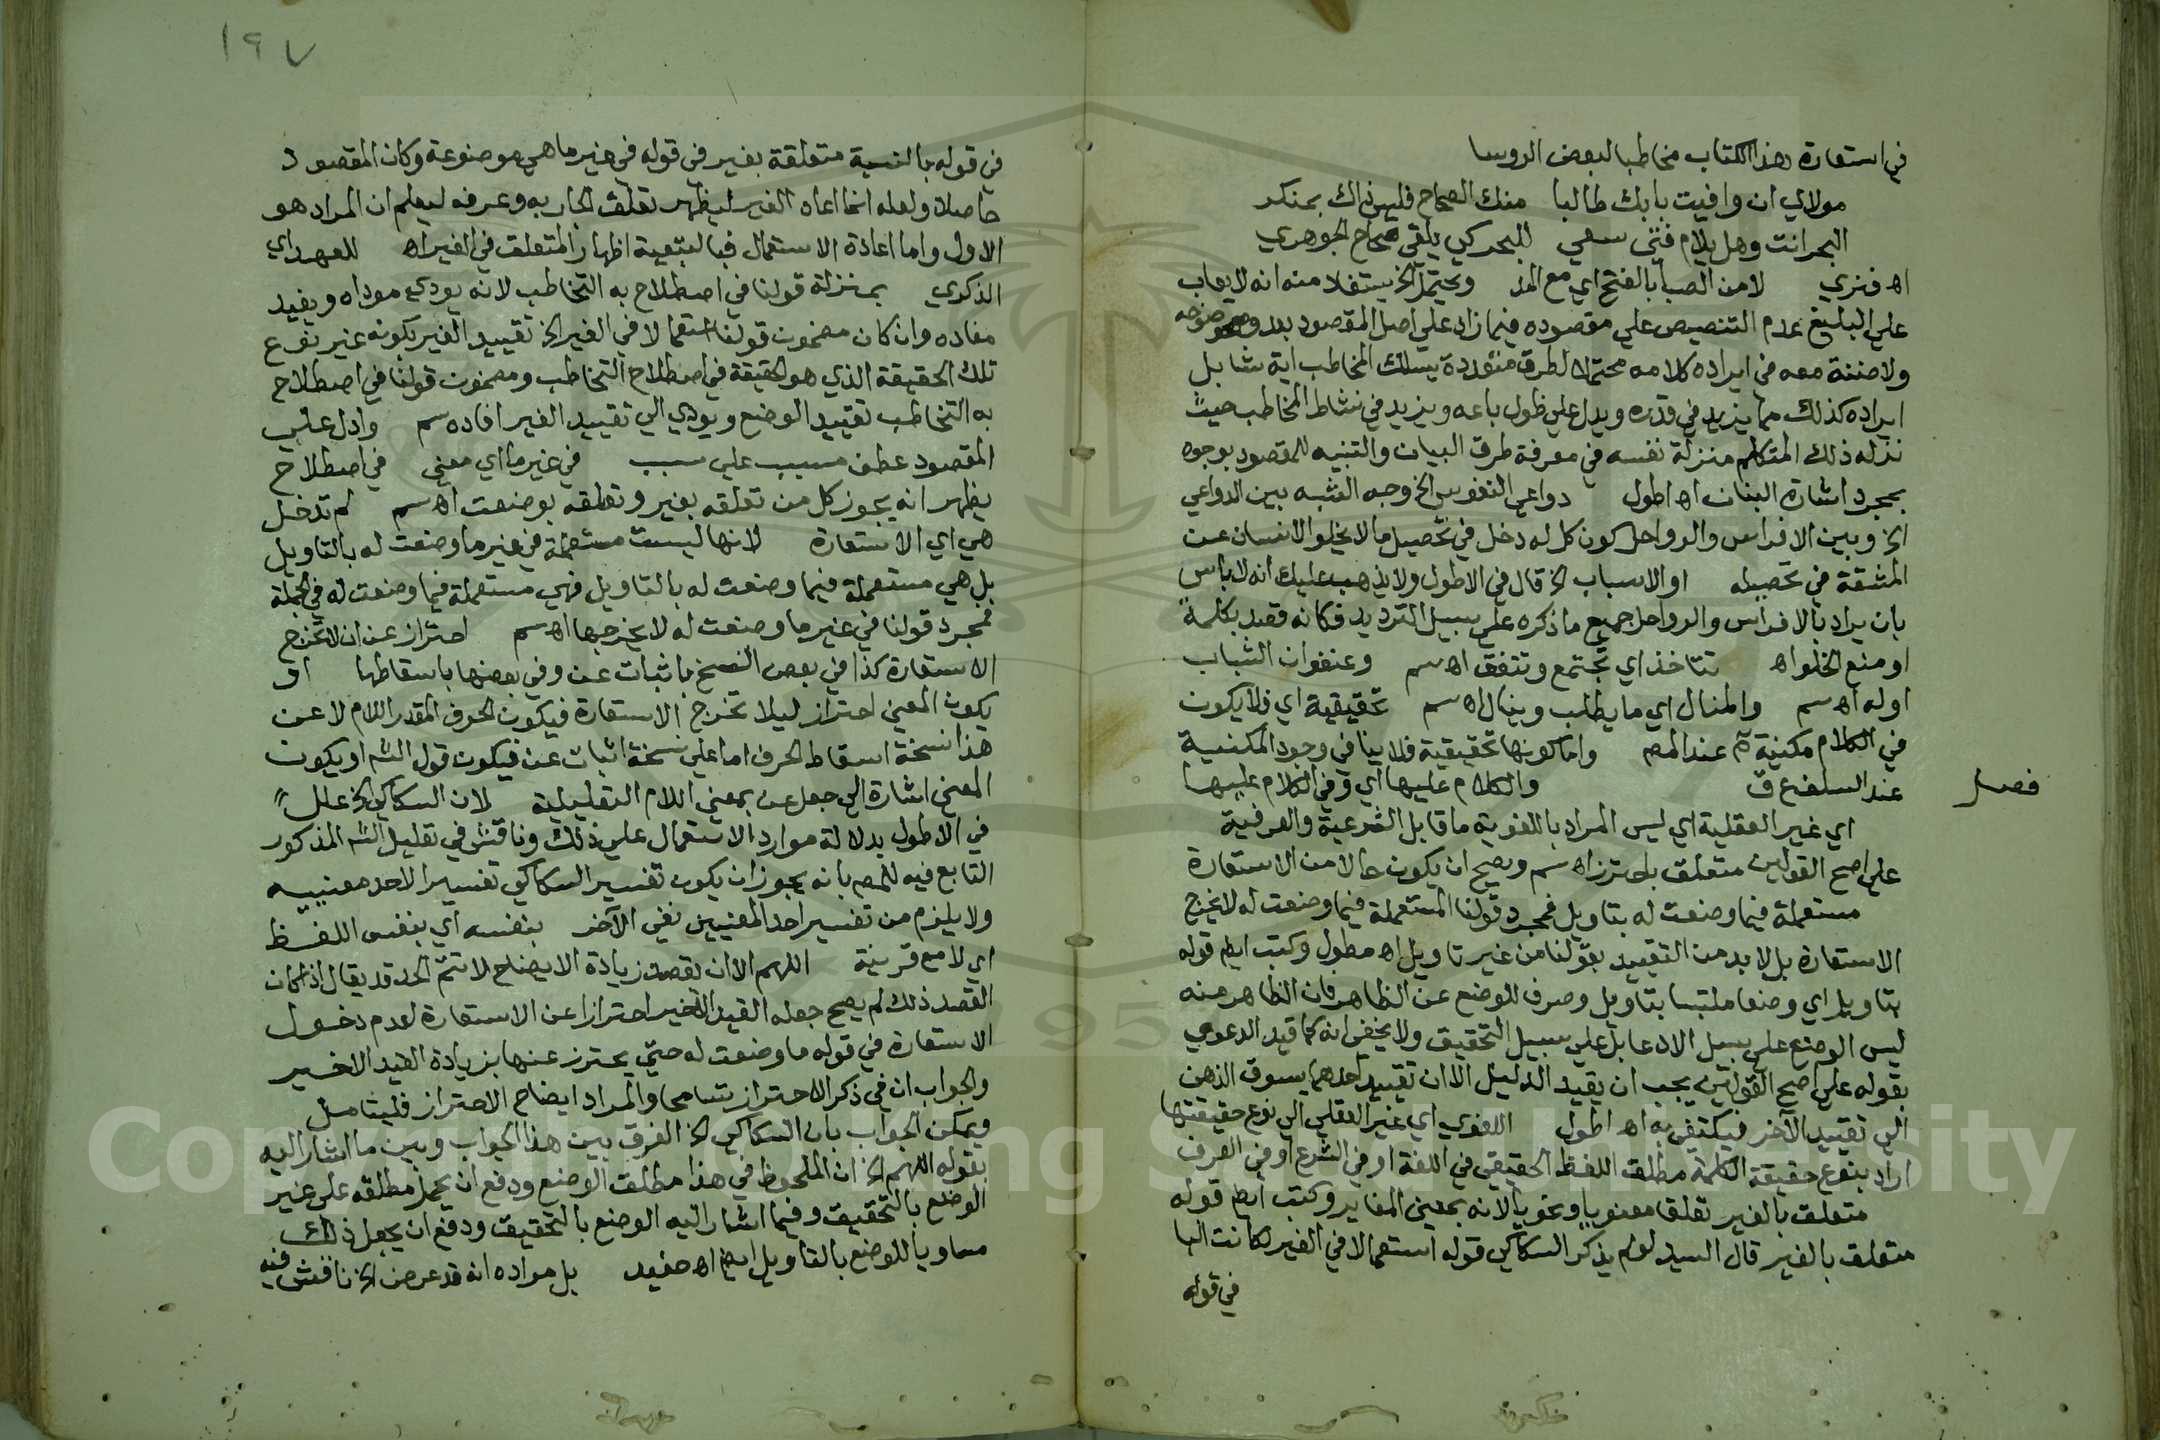 في استعارة هذا الكتاب مخاطبا لبعض الروسا
مولاي ان وافيت بابك طالبا منك الصحاح فليس ذاك بمنكر
البحر انت وهل يلام فتى سعي للبحر كي يلقي صحاح الجوهري
اه فنري لا من الصبا بالفتح اي مع المد ويحتمل الخ يستفاد منه انه لا يعاب
علي البليغ عدم التنصيص علي مقصوده فيما زاد علي اصل المقصود بعد وضوحه
ولا ضنة معه في ايراده كلامه محتملا لطرق متعددة يسلك المخاطب اية شا بل
ايراده كذلك مما يزيد في قدره ويدل علي طول باعه ويزيد في نشاط المخاطب حيث
نزله ذلك المتكلم منزلة نفسه في معرفة طرق البيان والتنبيه للمقصود بوجوه
بمجرد اشارة البنان اه اطول دواعي النفوس الخ وجه الشبه بين الدواعي
الخ وبين الافراس والرواحل كون كل له دخل في تحصيل ما لا يخلو الانسان عن
المشقة في تحصيله او الاسباب الخ قال في الاطول ولا يذهب عليك انه لا باس
بان يراد بالافراس والرواحل جميع ما ذكره علي سبيل الترديد فكانه قصد بكلمة
او منع الخلو اه تتاخذ اي تجتمع وتتفق اه سم وعنفوان الشباب
اوله اه سم والمنال اي ما يطلب وينال اه سم تحقيقية اي فلا يكون
في الكلام مكنية ثم عند المص واما كونها تحقيقية فلا ينافي وجود المكنية
عند السلف ع ق والكلام عليها اي وفي الكلام عليها
فصل
اي غير العقلية اي ليس المراد باللغوية ما قابل الشرعية والعرفية
علي اصح القولين متعلق باحترز اه سم ويصح ان يكون حالا من الاستعارة
مستعملة فيما وضعت له بتاويل فمجرد قولنا المستعملة فيما وضعت له لا يخرج
الاستعارة بل لا بد من التقييد بقولنا من غير تاويل اه مطول وكتب ايض قوله
بتاويل اي وضعا ملتبسا بتاويل وصرف للوضع عن الظاهر فان الظاهر منه
ليس الوضع علي سبيل الادعا بل علي سبيل التحقيق ولا يخفى انه كما قيد الدعوي
بقوله علي اصح القولين يجب ان يقيد الدليل الا ان تقييد احدهما يسوق الذهن
الي تقييد الآخر فيكتفي به اه اطول اللغوي اي غير العقلي الي نوع حقيقتها
اراد بنوع حقيقة الكلمة مطلق اللفظ الحقيقي في اللغة او في الشرع او في العرف
متعلق بالغير تعلقا معنويا ونحويا لانه بمعني المغاير وكتب ايض قوله
متعلق بالغير قال السيد لو لم يذكر السكاكي قوله استعمالا في الغير لكانت البا
في قوله
١٩٧
في قوله بالنسبة متعلقة بغير في قوله في غير ما هي موضوعة وكان المقصود
حاصلا ولعله انما اعاد الغير ليظهر تعلق الجار به وعرفه ليعلم ان المراد هو
الاول واما اعادة الاستعمال فبالتبعية اظهارا لمتعلق في الغير اه للعهد اي
الذكري بمنزلة قولنا في اصطلاح به التخاطب لانه يودي موداه ويفيد
مفاده وان كان مضمون قولنا استعمالا في الغير الخ تقييد الغير بكونه غير نوع
تلك الحقيقة الذي هو الحقيقة في اصطلاح التخاطب ومضمون قولنا في اصطلاح
به التخاطب تقييد الوضع ويودي الي تقييد الغير افاده سم وادل علي
المقصود عطف مسبب علي سبب في غير ما اي معني في اصطلاح
يظهر انه يجوز كل من تعلقه بغير وتعلقه بوضعت اه سم لم تدخل
هي اي الاستعارة لانها ليست مستعملة في غير ما وضعت له بالتاويل
بل هي مستعملة فيما وضعت له بالتاويل فهي مستعملة فيما وضعت له في الجملة
فمجرد قولنا في غير ما وضعت له لا يخرجها اه سم احتراز عن ان لا تخرج
الاستعارة كذا في بعض النسخ باثبات عن وفي بعضها باسقاطها او
يكون المعني احتراز ليلا تخرج الاستعارة فيكون الحرف المقدر اللام لا عن
هذا نسخة اسقاط الحرف اما علي نسخة اثبات عن فيكون قول الش او يكون
المعني اشارة الي جعل عن بمعني اللام التعليلية لان السكاكي الخ علل
في الاطول بدلالة موارد الاستعمال علي ذلك وناقش في تعليل الش المذكور
التابع فيه للمص بانه يجوز ان يكون تفسير السكاكي تفسيرا لاحد معنييه
ولا يلزم من تفسير احد المعنيين نفي الآخر بنفسه اي بنفس اللفظ
اي لا مع قرينة اللهم الا ان يقصد زيادة الايضاح لا تتم الحد قد يقال اذا كان
القصد ذلك لم يصح جعله القيد الاخير احترازا عن الاستعارة لعدم دخول
الاستعارة في قوله ما وضعت له حتي يحترز عنها بزيادة القيد الاخير
والجواب ان في ذكر الاحتراز تسامحا والمراد ايضاح الاحتراز فليتامل
ويمكن الجواب بان السكاكي الخ الفرق بين هذا الجواب وبين ما اشار اليه
بقوله اللهم الخ ان الملحوظ في هذا مطلق الوضع ودفع ان يحمل مطلقه علي غير
الوضع بالتحقيق وفيما اشار اليه الوضع بالتحقيق ودفع ان يجعل ذلك
مساويا للوضع بالتاويل ايض اه حفيد بل مراده انه قد عرض الخ ناقش فيه